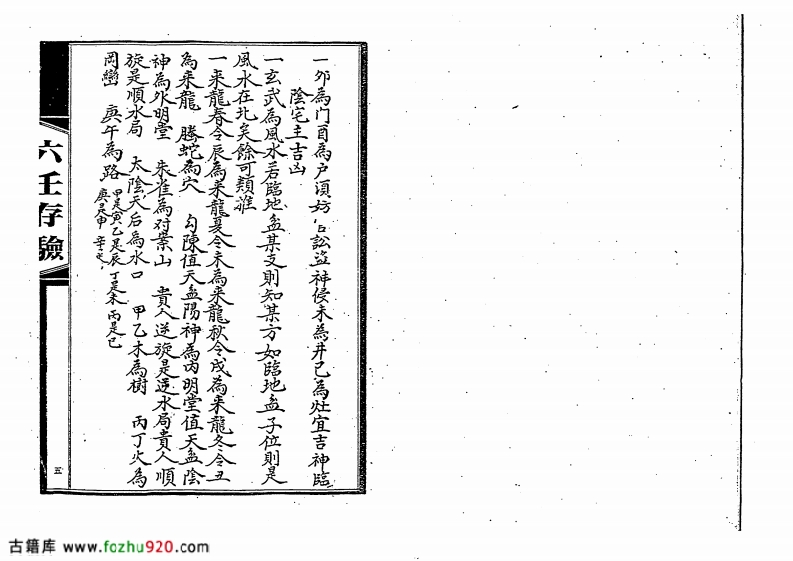 一卯為門酉為户須妨官訟盜神侵未為井巳為灶宜吉神臨
陰宅主吉凶
一玄武為風水若臨地盆某支則知某方如臨地盆子位則是
風水在北矣餘可類推
一来龍春令辰為来龍夏令未為来龍秋令戌為来龍冬令丑
為来龍 騰蛇為穴 勾陳值天盆陽神為内明堂值天盆陰
神為外明堂 朱雀為对案山 貴人逆旋是逆水局貴人順
旋是順水局 太陰天后為水口 甲乙木為樹 丙丁火為
岡巒 庚午為路 甲是寅乙是辰丁是未丙是巳
庚是申
六壬存驗
五
古籍库 www.fozhu920.com